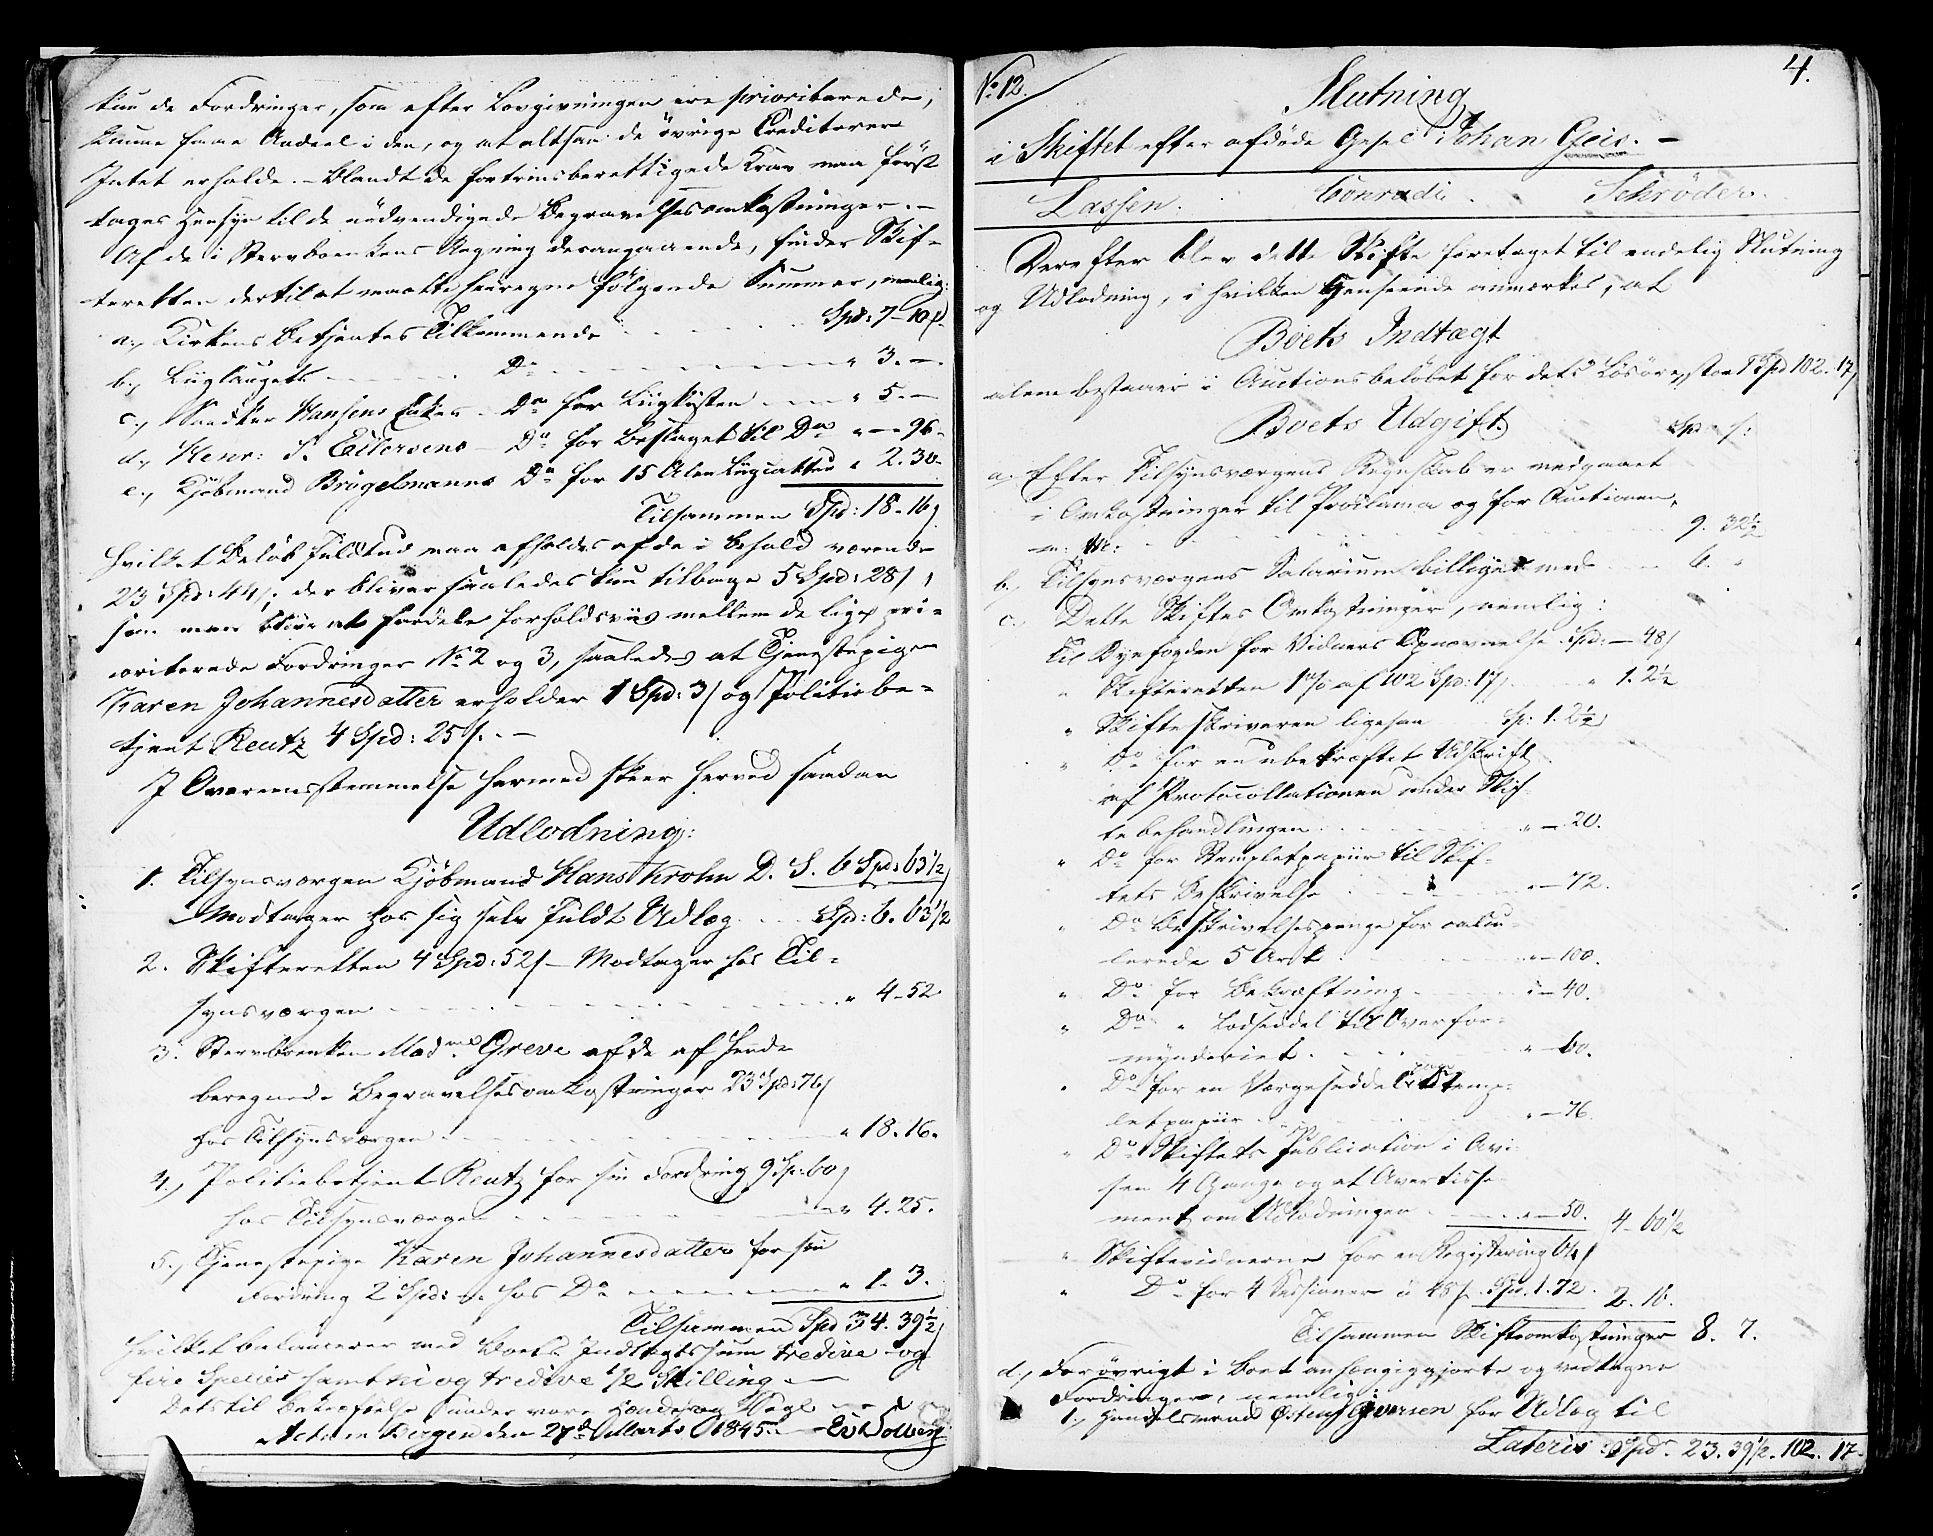 kun de Fordringer, som efter Lovgivningen ere prioriterede,
kunne faae Andeel i den, og at altsaa de øvrige Creditorer
Intet erholde. – Blandt de fortrinsberettigede Krav maa først
tages Hensyn til de nødvendigede Begravelsesomkostninger. –
Af de i Stervboenkens Regning desangaaende, finder Skif-
teretten dertil at maatte henregne følgende Summer, nemlig:
a., Kirkens Betjentes Tilkommende Spd: 7–10 s.
b., Liiglaugets Do " 3. –
c., Snedker Hansens Enkes Do for Liigkisten " 5. –
d., Henr: S. Eilersens Do for Beslaget til Do " – 96 –
e., Kjøbmand Brögelmanns Do for 15 Alen Liiglakken " 2. 30.
Tilsammen Spd: 18–16 s
hvilket Beløb fuldtud maa afholdes af de i Behold værende
23 Spd: 44 s; der bliver saaledes kun tilbage 5 Spd: 28 s,
som maa blive at fordele forholdsviis mellem de lige pri-
oriterede Fordringer No 2 og 3, saaledes at Tjenestepige
Karen Johannesdatter erholder 1 Spd: 3 s og Politiebe-
tjent Reutz 4 Spd: 25 s. –
I Overeensstemmelse hermed skeer herved saadan
Udlodning:
1. Tilsynsværgen Kjøbmand Hans Krohn D. S. 6 Spd: 63 1/2 s
Modtager hos sig selv fuldt Udlæg Spd: 6. 63 1/2
2. Skifteretten 4 Spd: 52 s – Modtager hos Til-
synsværgen " 4–52
3. Stervboenken Madme Greve af de af hende
beregnede Begravelsesomkostninger 23 Spd: 76 s
hos Tilsynsværgen " 18. 16.
4., Politiebetjent Reutz for sin Fordring 9 Sp: 60 s
hos Tilsynsværgen " 4. 25.
5., Tjenestepige Karen Johannesdatter for sin
Fordring 2 Spd: – hos Do " 1. 3.
Tilsammen Spd 34. 39 1/2 s
hvilket balancerer med Boets Indtægtssum tredive og
fire Species samt ni og tredive 1/2 Skilling –
Dets til Bekræftelse under vore Hænder og Segl
Actum Bergen den 27de Marts 1845.
No 12. 4.
Slutning
i Skiftet efter afdøde Gesel Johan Geis. –
Lassen. Conradi. Schrøder.
Derefter blev dette Skifte foretaget til endelig Slutning
og Udlodning, i hvilken Henseende anmærkes, at
Boets Indtægt
alene bestaaer i Auctionsbeløbet for dets Løsøre, stor Spd 102. 17 s
Boets Udgift
Sp s:
a. Efter Tilsynsværgens Regnskab er medgaaet
i Omkostninger til Proclama og for Auctionen,
m: M: 9. 32 1/2
b. Tilsynsværgens Salarium billiges med 6. "
c., Dette Skiftes Omkostninger, nemlig:
Til Byefogden for Vidners Opnævnelse Spd: – 48 s
" Skifteretten 1 % af 102 Spd: 17 s " 1. 2 1/2
" Skifteskriveren ligesaa Sp: 1. 2 1/2 s
" Do for en ubekræftet Udskrift
af Protocollationen under Skif-
tebehandlingen " – 20.
" Do for Stempletpapiir til Skif-
tets Beskrivelse " – 72.
" Do Beskrivelsespenge for calcu-
lerede 5 Ark " – 100.
" Do for Bekræftning " – 40.
" Do " Lodseddel til Overfor-
mynderiet " – 60.
" Do for en Værgeseddel stemp-
letpapiir " – 76.
" Do Skiftets Publication i Avi-
sen 4 Gange og et Avertisse-
ment om Udlodningen " – 50. 4–60 1/2
" Skiftevidnerne for en Registering 64 s
" Do for 4 Sessioner a 48 s Spd. 1. 72. 2. 16.
Tilsammen Skifteomkostninger 8. 7.
d., Forøvrigt i Boet anhængiggjorte og vedtagne
Fordringer, nemlig:
1., Handelsmand Østen Iversen for Udlæg til
Lateris Spd. 23. 39 1/2. 102. 17.